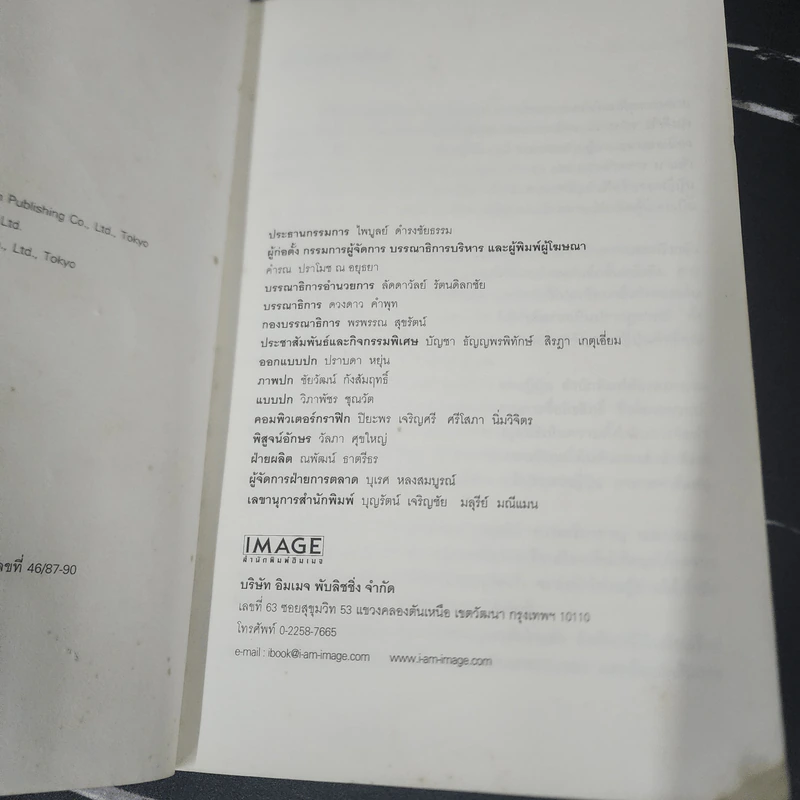 Publishing Co., Ltd., Tokyo
Ltd.
Ltd., Tokyo
ลขที่ 46/87-90
ประธานกรรมการ ไพบูลย์ ดำรงชัยธรรม
ผู้ก่อตั้ง กรรมการผู้จัดการ บรรณาธิการบริหาร และผู้พิมพ์ผู้โฆษณา
คำรณ ปราโมช ณ อยุธยา
บรรณาธิการอำนวยการ ลัดดาวัลย์ รัตนดิลกชัย
บรรณาธิการ ดวงดาว คำพุท
กองบรรณาธิการ พรพรรณ สุขรัตน์
ประชาสัมพันธ์และกิจกรรมพิเศษ บัญชา ธัญญพรพิทักษ์ สิรฎา เกตุเอี่ยม
ออกแบบปก ปราบดา หยุ่น
ภาพปก ชัยวัฒน์ กังสัมฤทธิ์
แบบปก วิภาพัชร ชุณวัต
คอมพิวเตอร์กราฟิก ปิยะพร เจริญศรี ศรีโสภา นิ่มวิจิตร
พิสูจน์อักษร วัลภา ศุขใหญ่
ฝ่ายผลิต ณพัฒน์ ธาตรีธร
ผู้จัดการฝ่ายการตลาด บุเรศ หลงสมบูรณ์
เลขานุการสำนักพิมพ์ บุญรัตน์ เจริญชัย มลุรีย์ มณีแมน
IMAGE
สำนักพิมพ์อิมเมจ
บริษัท อิมเมจ พับลิชชิ่ง จำกัด
เลขที่ 63 ซอยสุขุมวิท 53 แขวงคลองตันเหนือ เขตวัฒนา กรุงเทพฯ 10110
โทรศัพท์ 0-2258-7665
e-mail : ibook@i-am-image.com www.i-am-image.com